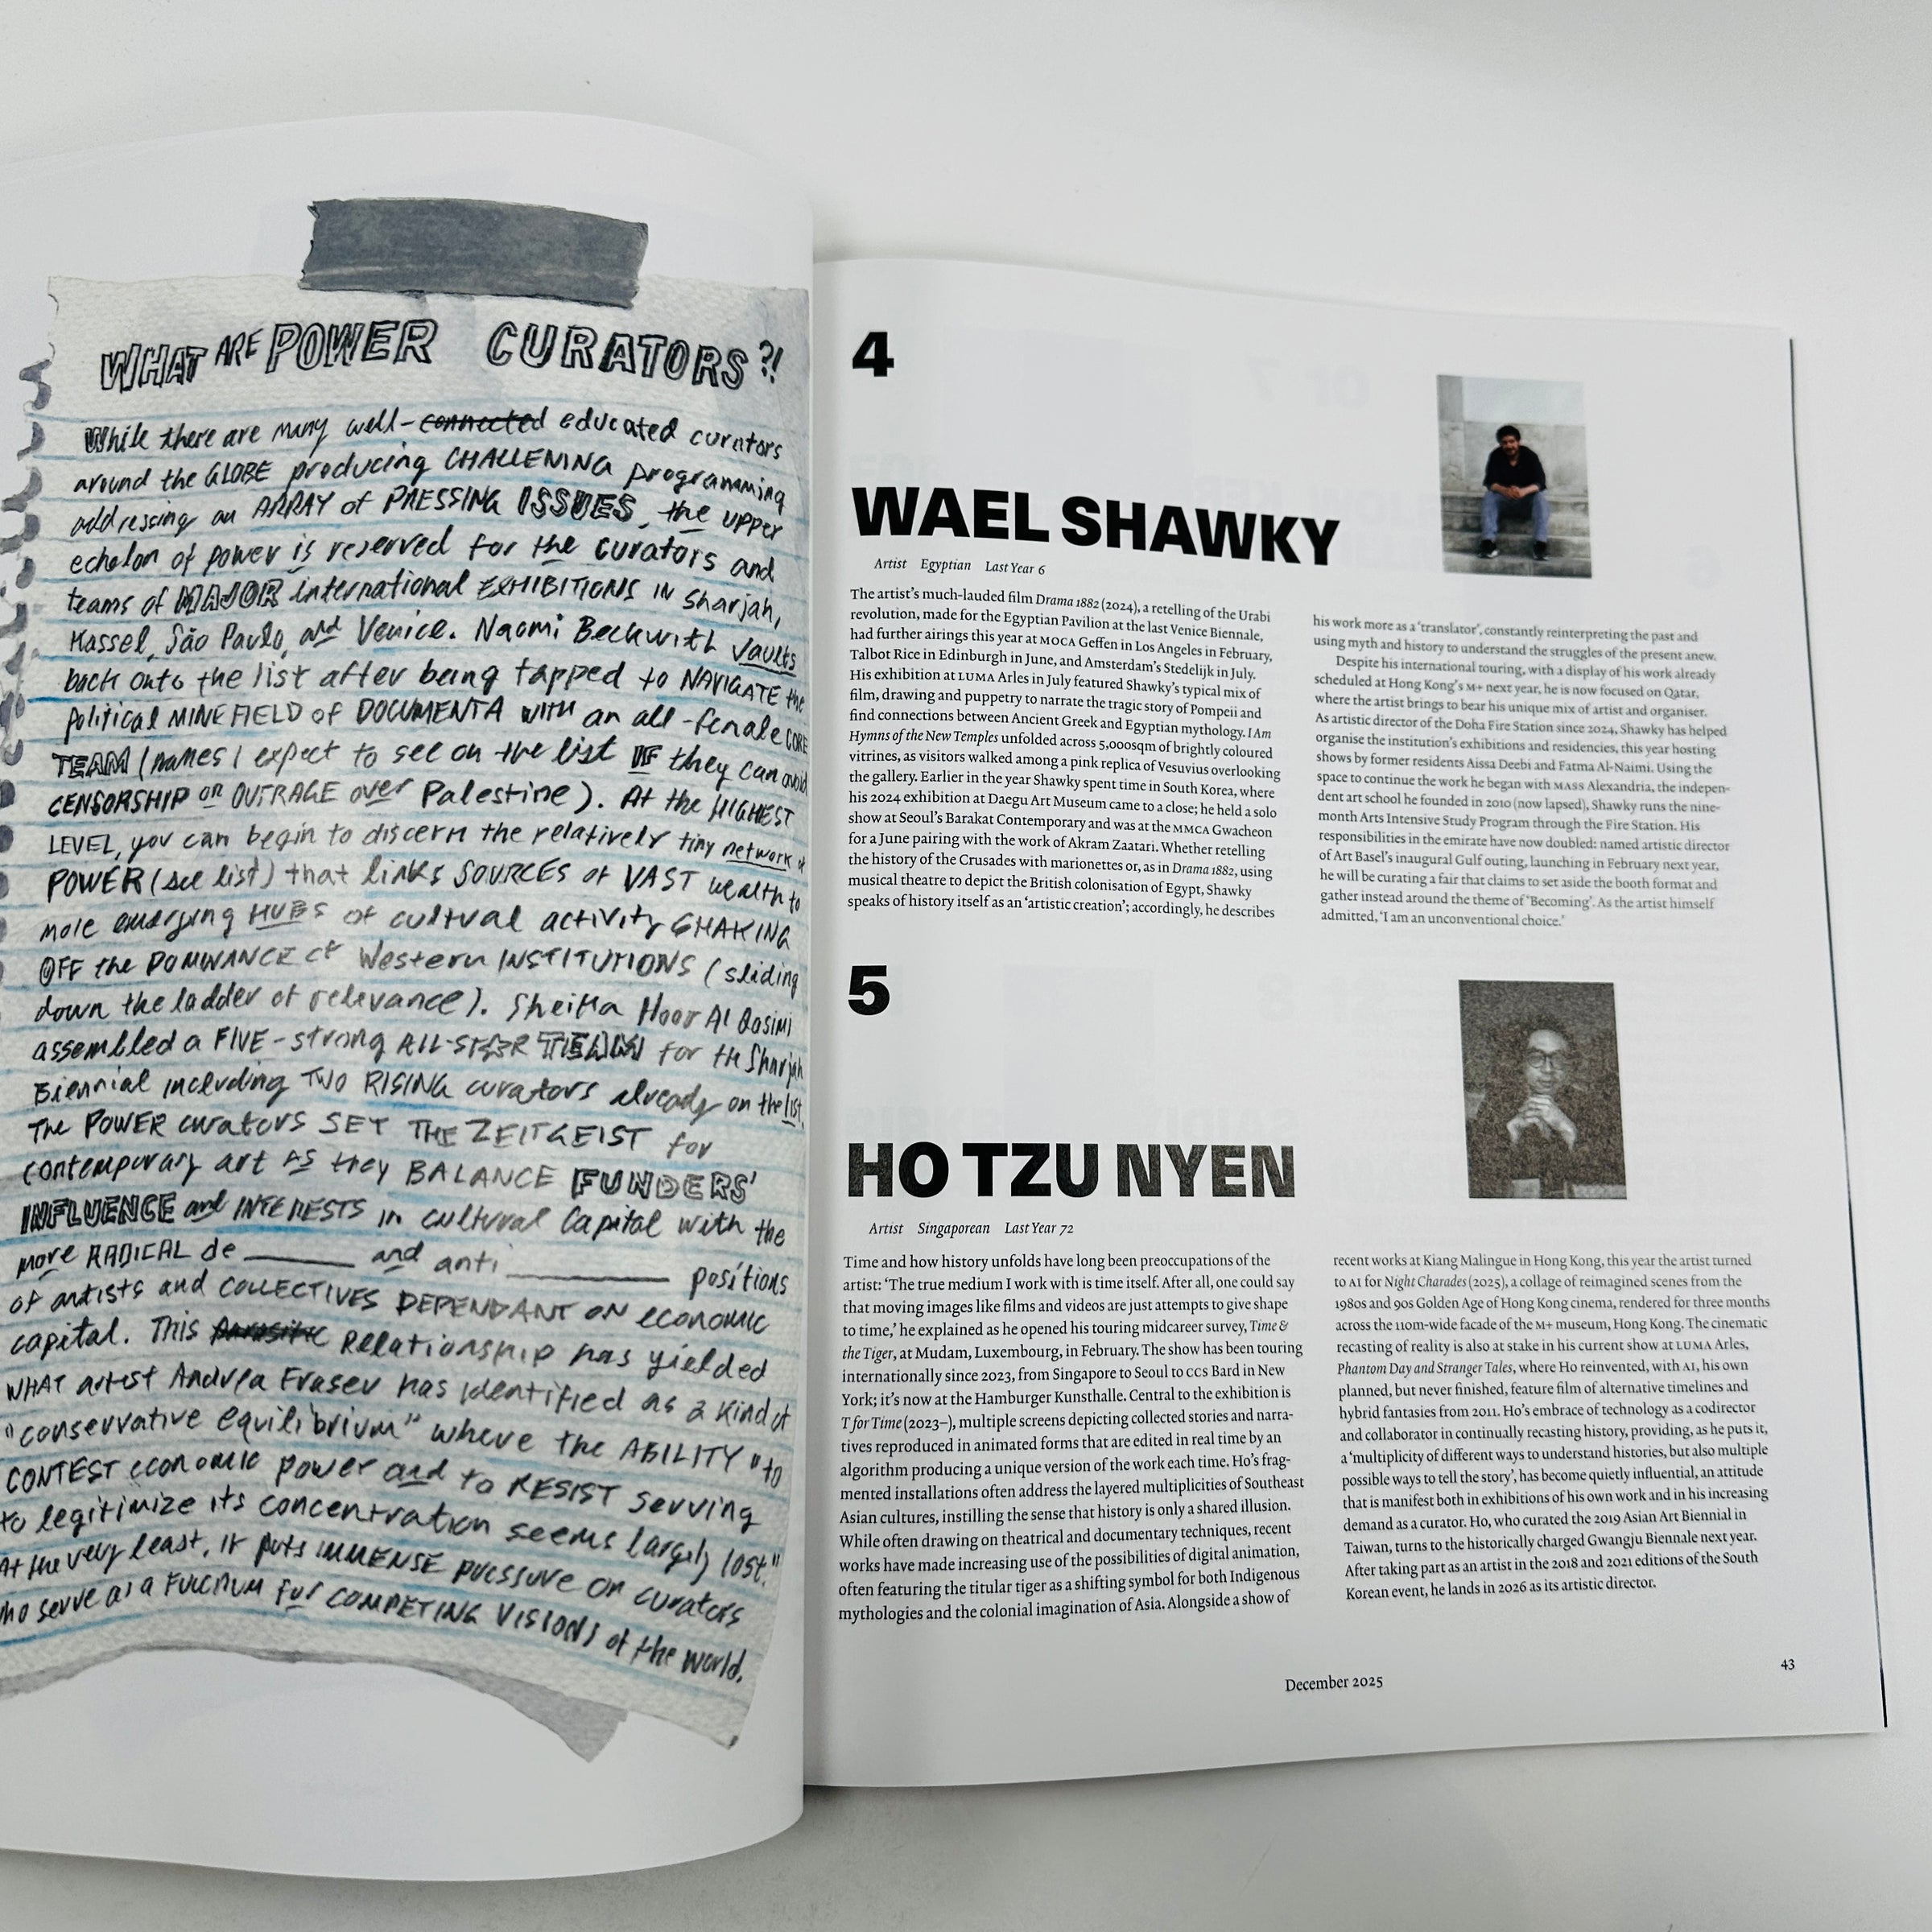 WHAT ARE POWER CURATORS?!
While there are many well-connected educated curators
around the GLOBE producing CHALLENING programming
addressing an ARRAY of PRESSING ISSUES, the upper
echelon of power is reserved for the curators and
teams of MAJOR international EXHIBITIONS IN Sharjah,
Kassel, São Paulo, and Venice. Naomi Beckwith vaults
back onto the list after being tapped to NAVIGATE the
political MINEFIELD of DOCUMENTA with an all-female CORE
TEAM (names I expect to see on the list IF they can avoid
CENSORSHIP or OUTRAGE over Palestine). At the HIGHEST
LEVEL, you can begin to discern the relatively tiny network of
POWER (see list) that links SOURCES of VAST wealth to
more emerging HUBS of cultural activity SHAKING
OFF the DOMINANCE of Western INSTITUTIONS (sliding
down the ladder of relevance). Sheikha Hoor Al Qasimi
assembled a FIVE-strong ALL-STAR TEAM for the Sharjah
Biennial including TWO RISING curators already on the list.
The POWER curators SET THE ZEITGEIST for
contemporary art AS they BALANCE FUNDERS'
INFLUENCE and INTERESTS in cultural Capital with the
more RADICAL de______ and anti________ positions
of artists and COLLECTIVES DEPENDANT ON economic
capital. This parasitic Relationship has yielded
WHAT artist Andrea Fraser has identified as a kind of
"conservative equilibrium" where the ABILITY "to
CONTEST economic power and to RESIST serving
to legitimize its concentration seems largely lost."
At the very least, it puts IMMENSE pressure on curators
who serve as a FULCRUM for COMPETING VISIONS of the world.
4
WAEL SHAWKY
Artist Egyptian Last Year 6
The artist's much-lauded film Drama 1882 (2024), a retelling of the Urabi
revolution, made for the Egyptian Pavilion at the last Venice Biennale,
had further airings this year at MOCA Geffen in Los Angeles in February,
Talbot Rice in Edinburgh in June, and Amsterdam's Stedelijk in July.
His exhibition at LUMA Arles in July featured Shawky's typical mix of
film, drawing and puppetry to narrate the tragic story of Pompeii and
find connections between Ancient Greek and Egyptian mythology. I Am
Hymns of the New Temples unfolded across 5,000sqm of brightly coloured
vitrines, as visitors walked among a pink replica of Vesuvius overlooking
the gallery. Earlier in the year Shawky spent time in South Korea, where
his 2024 exhibition at Daegu Art Museum came to a close; he held a solo
show at Seoul's Barakat Contemporary and was at the MMCA Gwacheon
for a June pairing with the work of Akram Zaatari. Whether retelling
the history of the Crusades with marionettes or, as in Drama 1882, using
musical theatre to depict the British colonisation of Egypt, Shawky
speaks of history itself as an 'artistic creation'; accordingly, he describes
his work more as a 'translator', constantly reinterpreting the past and
using myth and history to understand the struggles of the present anew.
Despite his international touring, with a display of his work already
scheduled at Hong Kong's M+ next year, he is now focused on Qatar,
where the artist brings to bear his unique mix of artist and organiser.
As artistic director of the Doha Fire Station since 2024, Shawky has helped
organise the institution's exhibitions and residencies, this year hosting
shows by former residents Aissa Deebi and Fatma Al-Naimi. Using the
space to continue the work he began with MASS Alexandria, the indepen-
dent art school he founded in 2010 (now lapsed), Shawky runs the nine-
month Arts Intensive Study Program through the Fire Station. His
responsibilities in the emirate have now doubled: named artistic director
of Art Basel's inaugural Gulf outing, launching in February next year,
he will be curating a fair that claims to set aside the booth format and
gather instead around the theme of 'Becoming'. As the artist himself
admitted, 'I am an unconventional choice.'
5
HO TZU NYEN
Artist Singaporean Last Year 72
Time and how history unfolds have long been preoccupations of the
artist: 'The true medium I work with is time itself. After all, one could say
that moving images like films and videos are just attempts to give shape
to time,' he explained as he opened his touring midcareer survey, Time &
the Tiger, at Mudam, Luxembourg, in February. The show has been touring
internationally since 2023, from Singapore to Seoul to CCS Bard in New
York; it's now at the Hamburger Kunsthalle. Central to the exhibition is
T for Time (2023–), multiple screens depicting collected stories and narra-
tives reproduced in animated forms that are edited in real time by an
algorithm producing a unique version of the work each time. Ho's frag-
mented installations often address the layered multiplicities of Southeast
Asian cultures, instilling the sense that history is only a shared illusion.
While often drawing on theatrical and documentary techniques, recent
works have made increasing use of the possibilities of digital animation,
often featuring the titular tiger as a shifting symbol for both Indigenous
mythologies and the colonial imagination of Asia. Alongside a show of
recent works at Kiang Malingue in Hong Kong, this year the artist turned
to AI for Night Charades (2025), a collage of reimagined scenes from the
1980s and 90s Golden Age of Hong Kong cinema, rendered for three months
across the 110m-wide facade of the M+ museum, Hong Kong. The cinematic
recasting of reality is also at stake in his current show at LUMA Arles,
Phantom Day and Stranger Tales, where Ho reinvented, with AI, his own
planned, but never finished, feature film of alternative timelines and
hybrid fantasies from 2011. Ho's embrace of technology as a codirector
and collaborator in continually recasting history, providing, as he puts it,
a 'multiplicity of different ways to understand histories, but also multiple
possible ways to tell the story', has become quietly influential, an attitude
that is manifest both in exhibitions of his own work and in his increasing
demand as a curator. Ho, who curated the 2019 Asian Art Biennial in
Taiwan, turns to the historically charged Gwangju Biennale next year.
After taking part as an artist in the 2018 and 2021 editions of the South
Korean event, he lands in 2026 as its artistic director.
December 2025
43